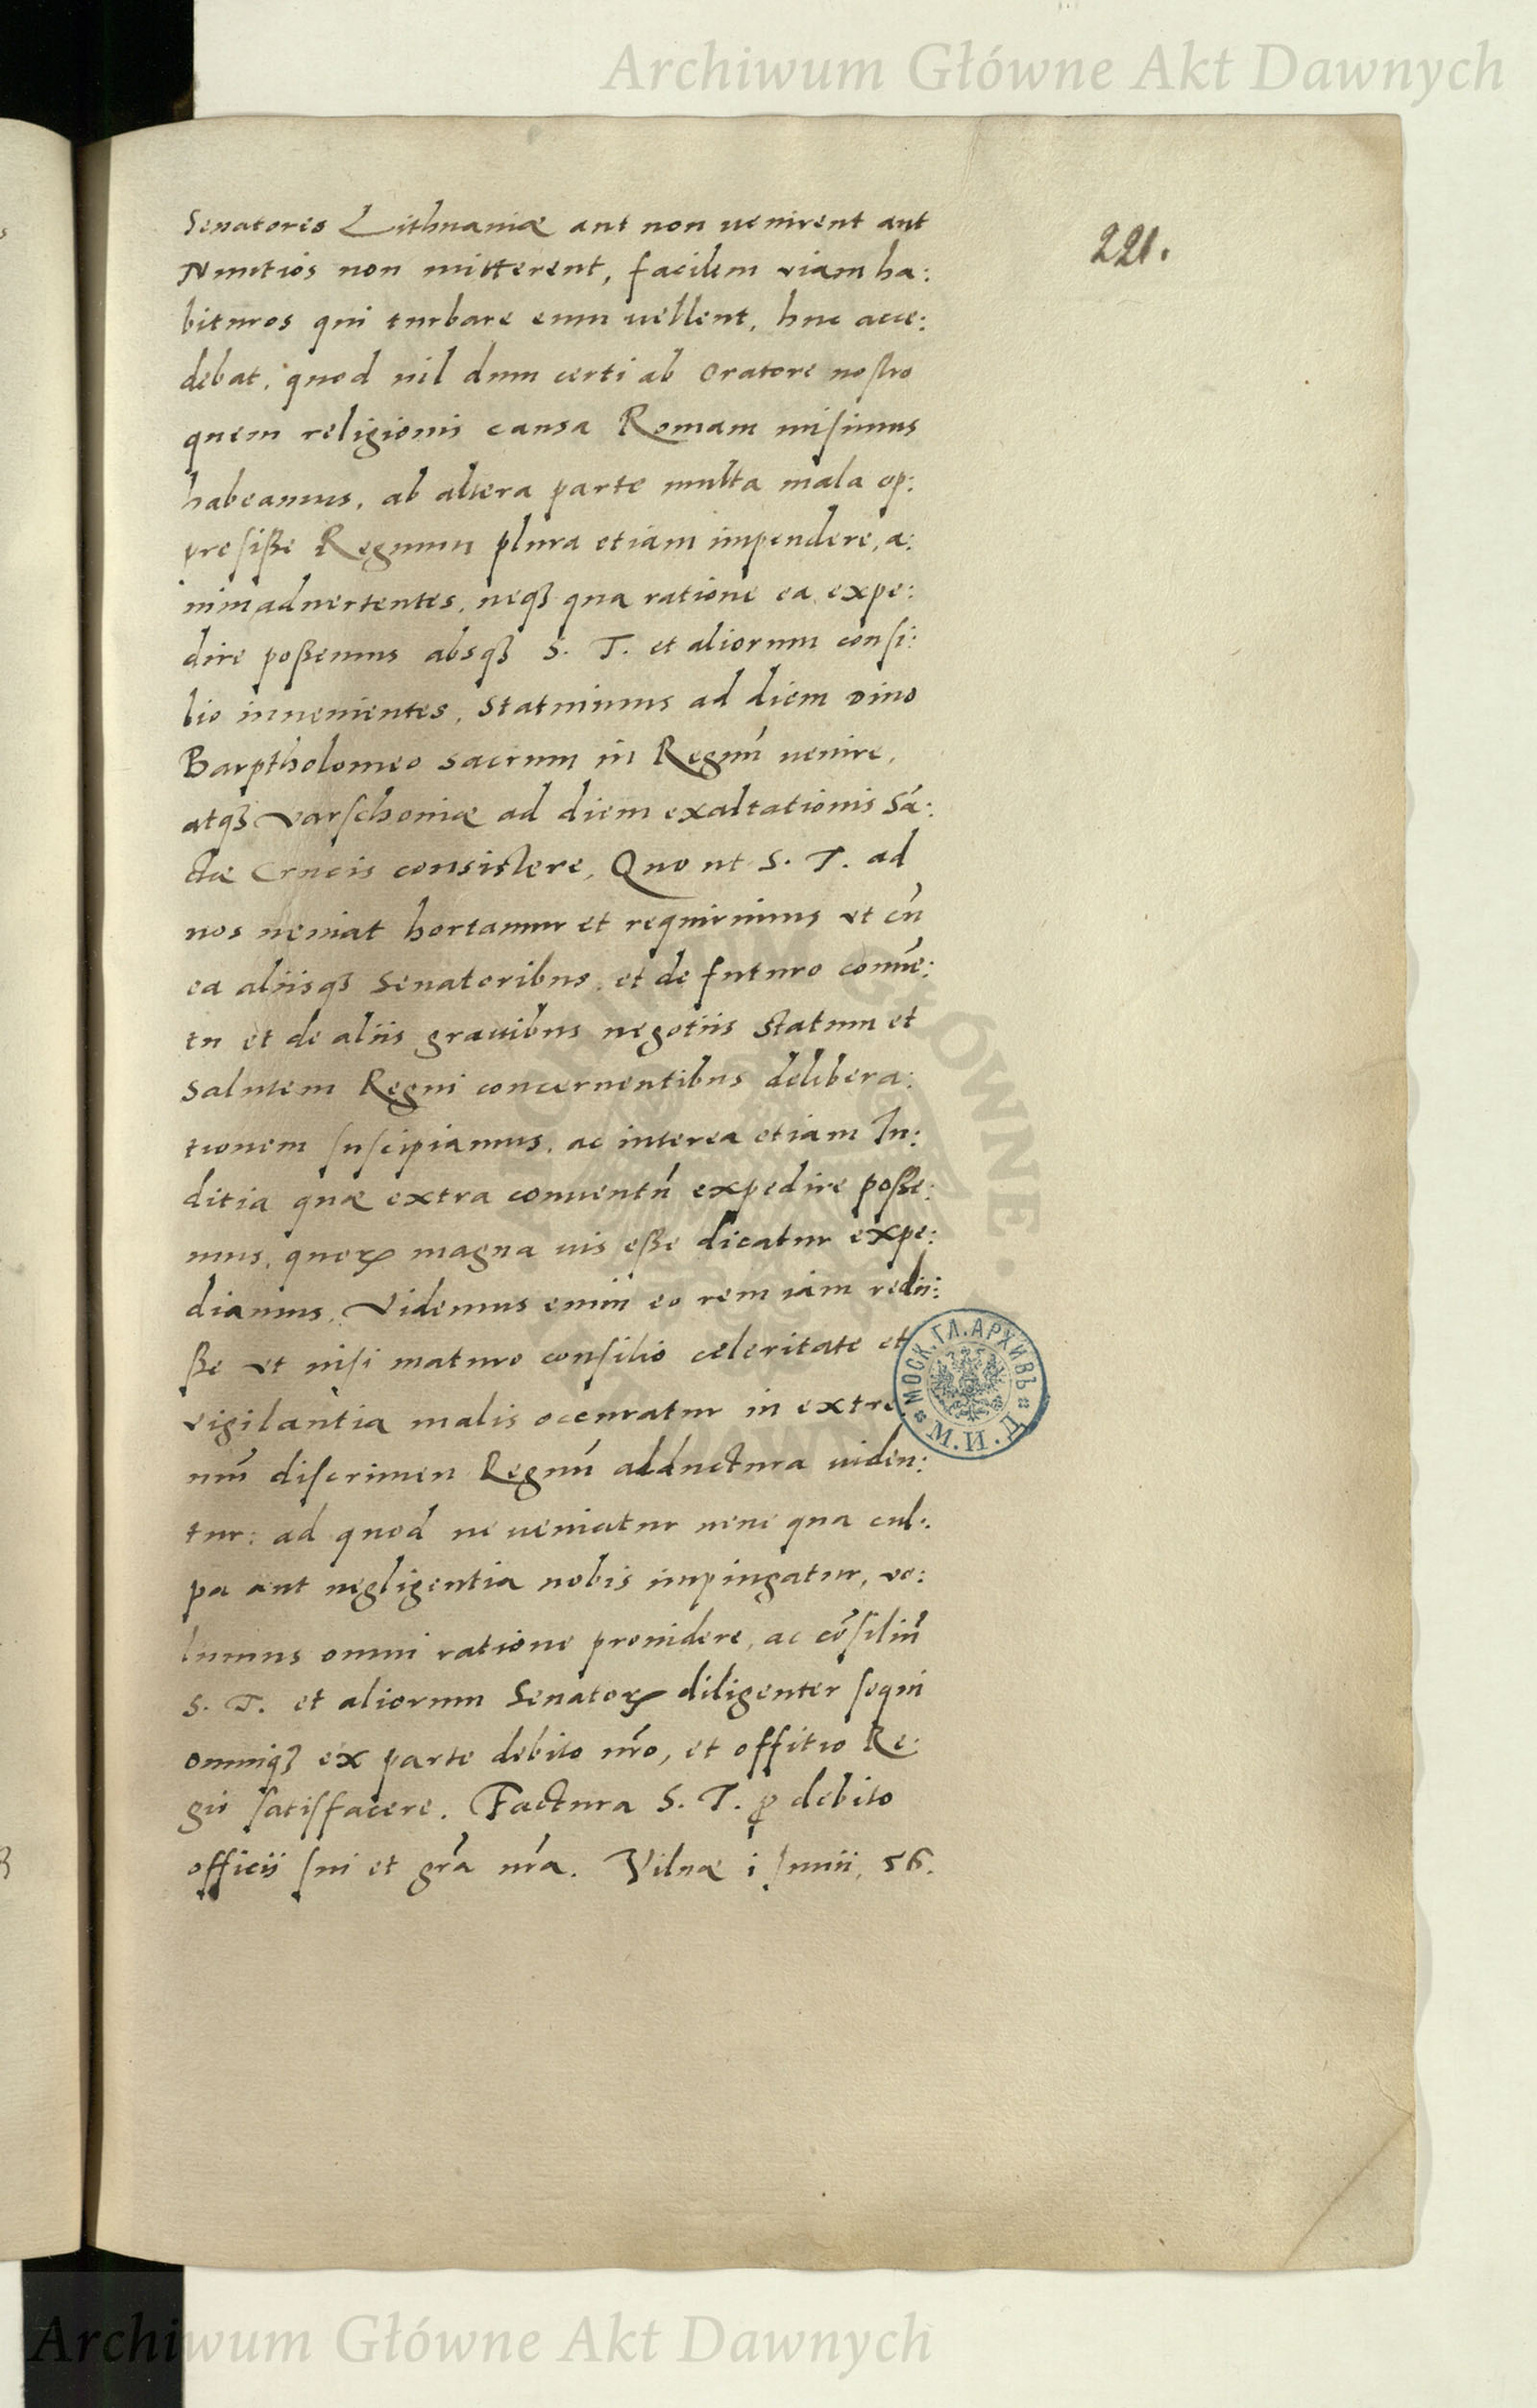 Archiwum Główne Akt Dawnych
221.
Senatores Lithuaniæ aut non uenirent aut
Nuntios non mitterent, facilem viam ha:
bituros qui turbare eum uellent, huc acce:
debat, quod nil dum certi ab Oratore nostro
quem religionis causa Romam misimus
habeamus, ab altera parte multa mala op:
presiße Regnum plura etiam impendere, a:
nimaduertentes, neqȝ qua ratione ea expe:
dire poßemus absqȝ S. T. et aliorum consi:
lio inuenientes, Statuimus ad diem Diuo
Barptholomeo sacrum in Regnū uenire,
atqȝ Varschouiæ ad diem exaltationis Sā:
ctæ Crucis consistere, Quo ut S. T. ad
nos ueniat hortamur et requirimus vt cū
ea aliisqȝ Senatoribus, et de futuro conuē:
tu et de aliis grauibus negotiis Statum et
Salutem Regni concernentibus delibera:
tionem suscipiamus, ac interea etiam Iu:
ditia quæ extra conuentū expedire poße:
mus, quoꝝ magna uis eße dicatur expe:
diamus. Videmus enim eo rem iam redii:
ße vt nisi maturo consilio celeritate et
vigilantia malis occuratur in extre
mū discrimen Regnū adductura uiden:
tur: ad quod ne ueniatur neue qua cul:
pa aut negligentia nobis impingatur, vo:
lumus omni ratione prouidere, ac cōsiliū
S. T. et aliorum Senatoꝝ diligenter sequi
omniqȝ ex parte debito nr̄o, et offitio Re:
gio satisfacere. Factura S. T. ꝓ debito
officii sui et gr̄a nr̄a. Vilnæ i Iunii, 56.
МОСК. ГЛ. АРХИВЪ
М.И.Д.
ARCHIWUM GŁÓWNE AKT DAWNYCH
Archiwum Główne Akt Dawnych